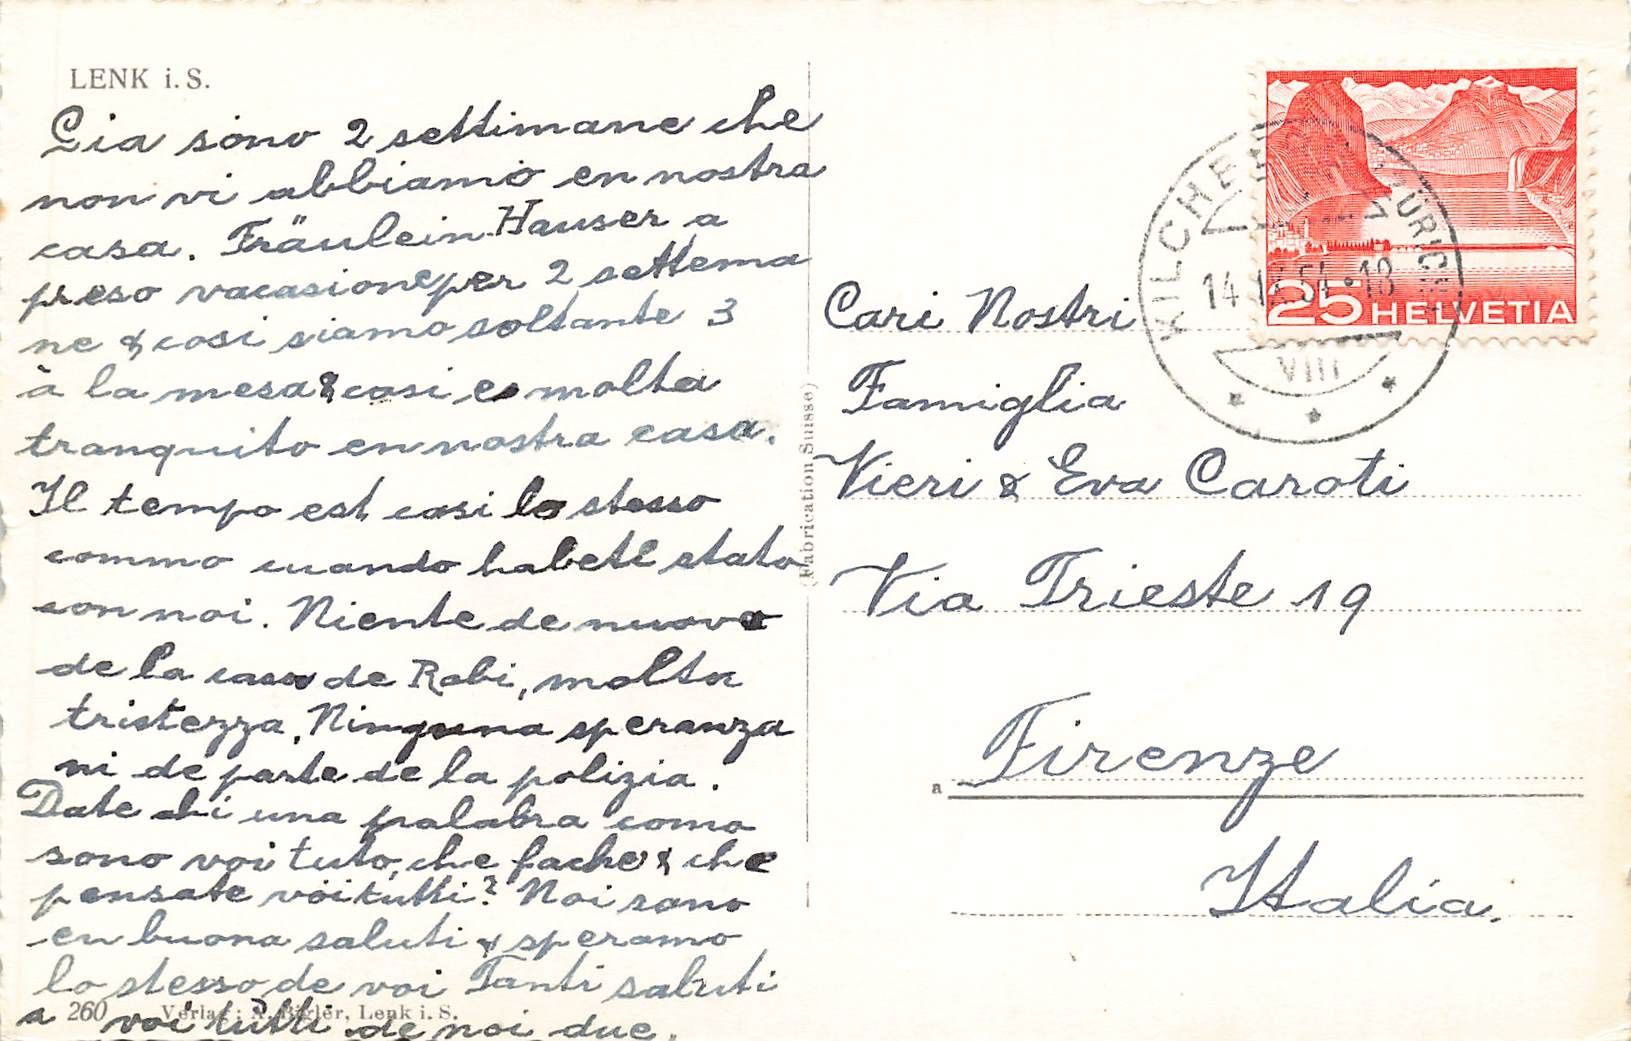 LENK i. S.
Gia sono 2 settimane che
non vi abbiamo en nostra
casa. Fräulein Hauser a
preso vacasione per 2 settema
ne & cosi siamo soltante 3
à la mesa & cosi e molta
tranquito en nostra casa.
Il tempo est casi lo stesso
commo cuando habeti stato
con noi. Niente de nuovo
de la casa de Rabi, molta
tristezza. Ninguna speranza
ni de parte de la polizia.
Date chi una palabra como
sono voi tuto, che fache & che
pensate voi tutti? Noi sono
en buona saluti & speramo
lo stesso de voi Tanti saluti
a voi tutti de noi due.
260 Verlag: A. Bigler, Lenk i. S.
(Fabrication Suisse)
KILCHBERG (ZÜRICH)
14.IX.54.-18
VIII
25 HELVETIA
Cari Nostri
Famiglia
Vieri & Eva Caroti
Via Trieste 19
a Firenze
Italia.